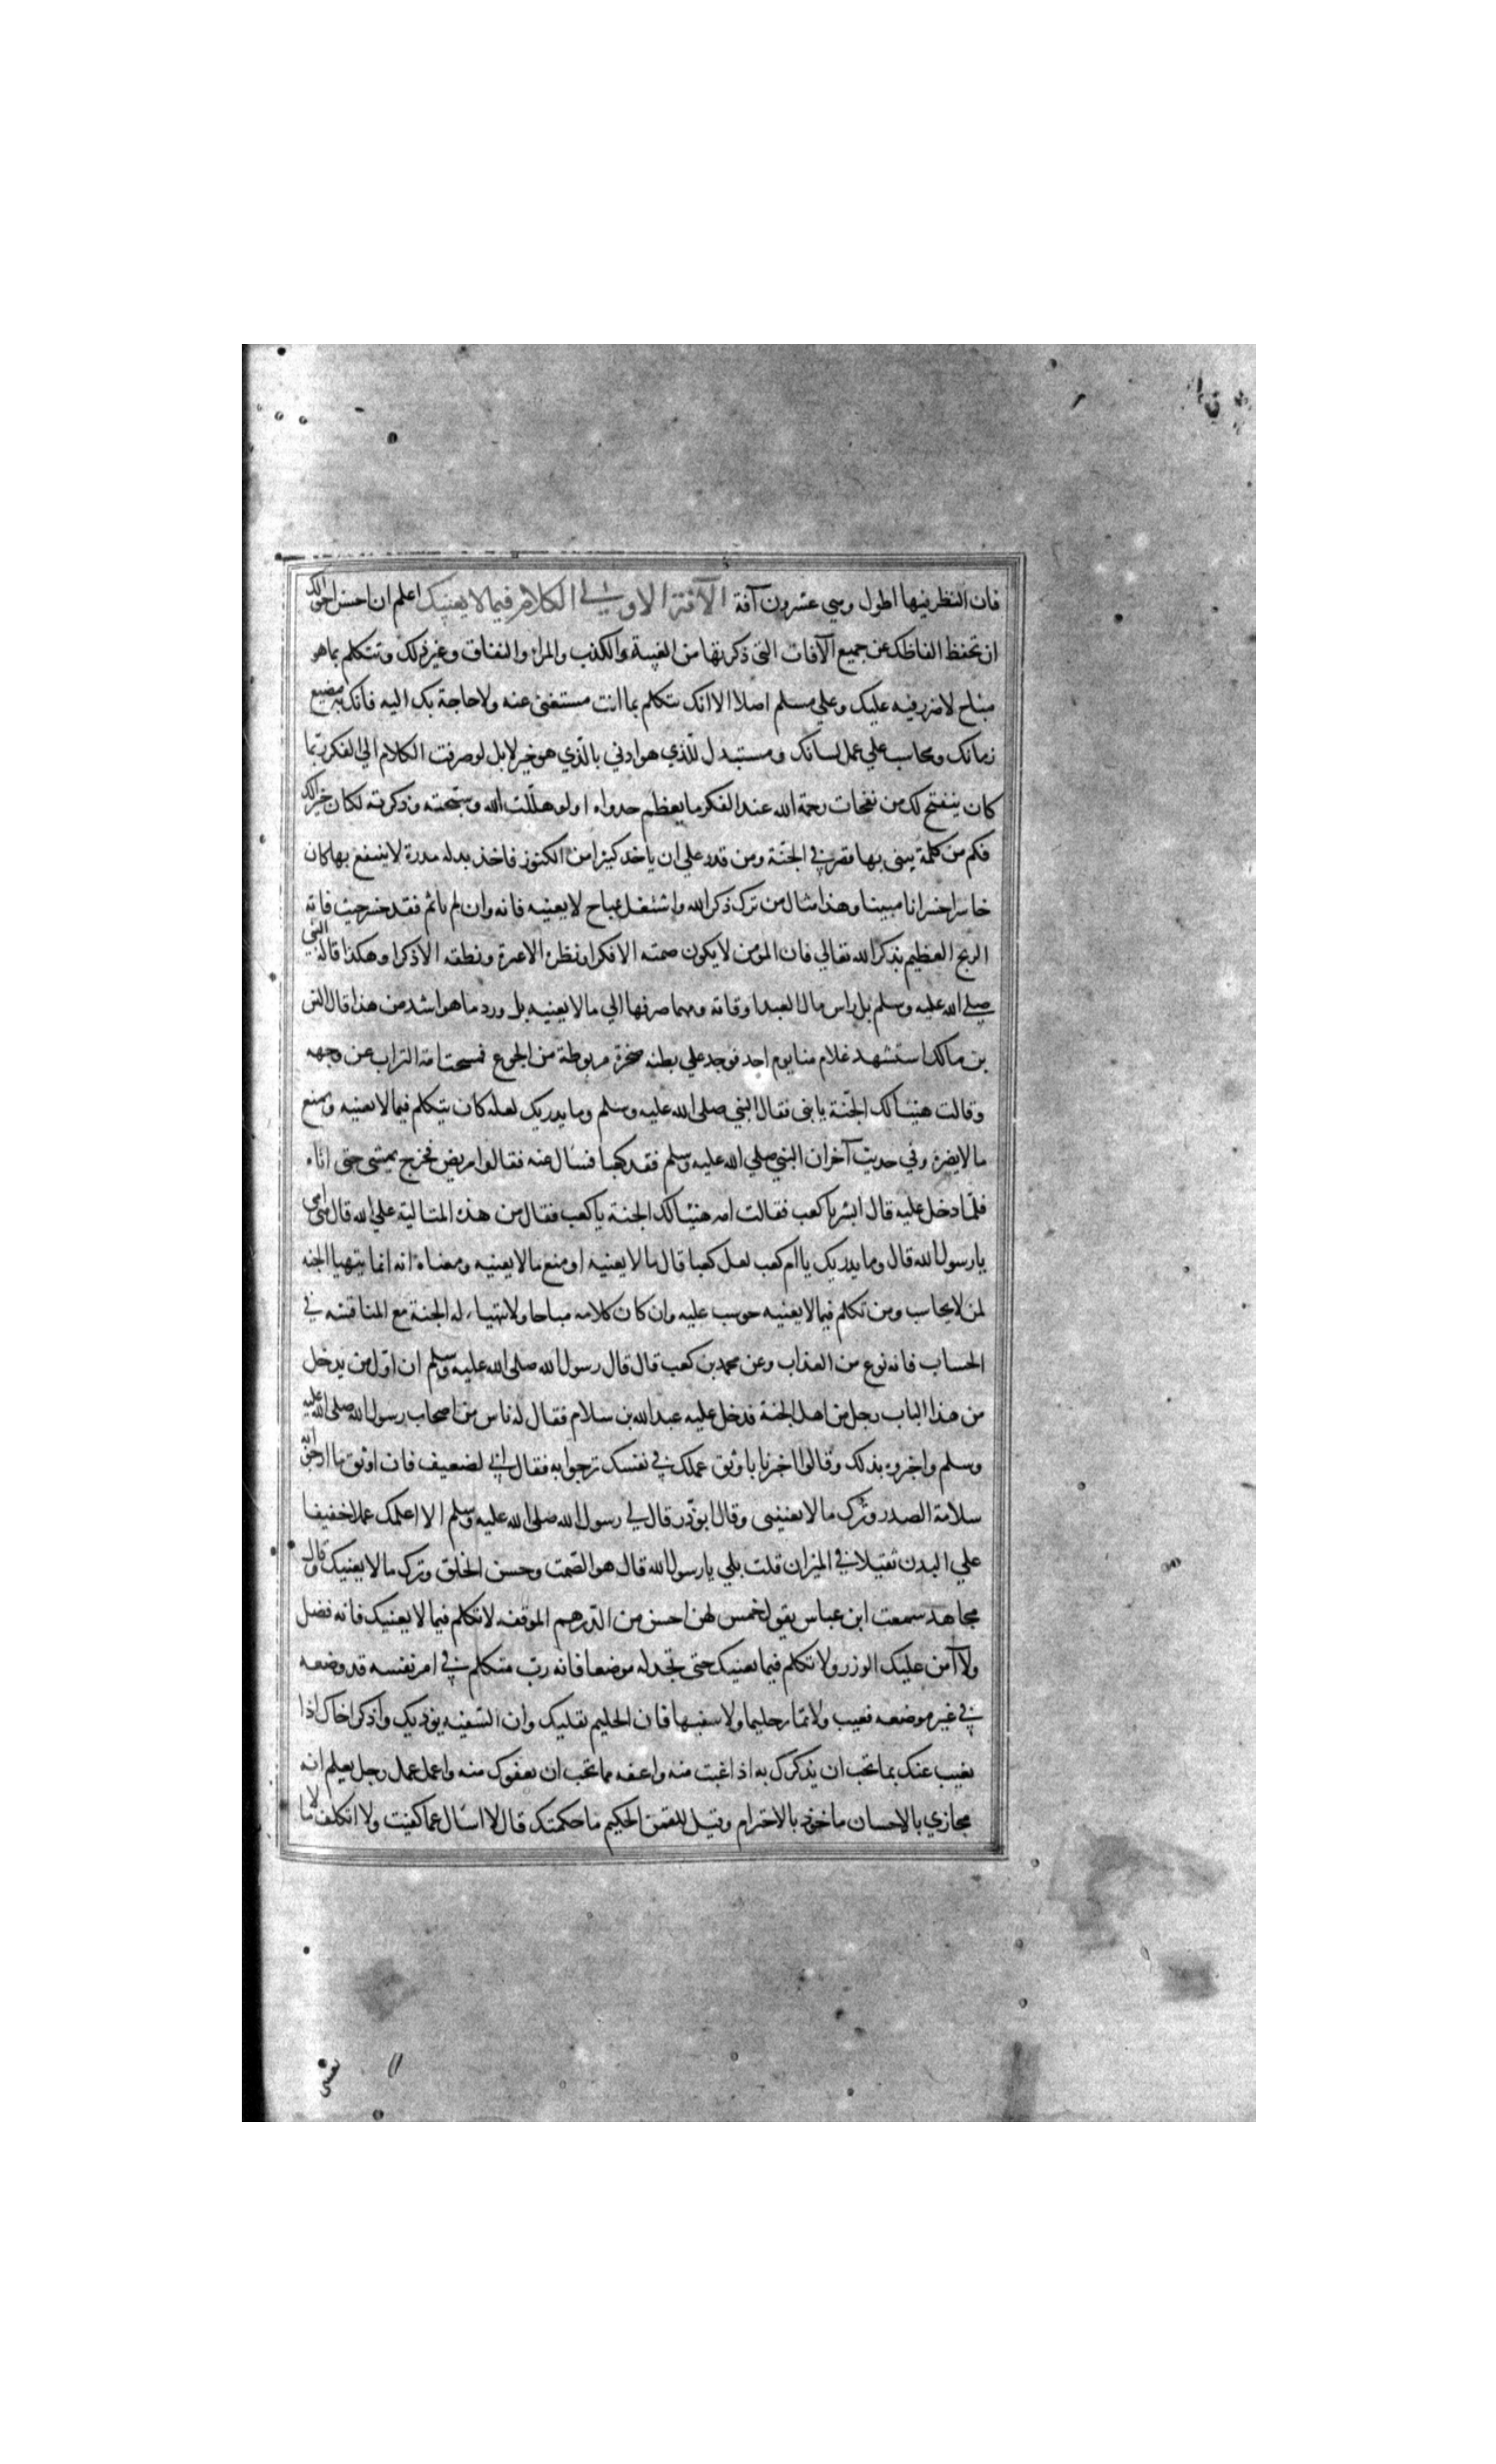 فان النظر فيها اطول وهي عشرون آفة الآفة الاولى الكلام فيما لا يعنيك اعلم ان احسن احوالك
ان تحفظ الفاظك عن جميع الآفات التى ذكرتها من الغيبة والكذب والمراء والنفاق وغير ذلك وتتكلم بما هو
مباح لا ضرر فيه عليك وعلي مسلم اصلا الا انك تتكلم بما انت مستغنى عنه ولا حاجة بك اليه فانك به مضيع
زمانك ومحاسب علي عمل لسانك ومستبدل للذي هو ادني بالذي هو خير لا بل لو صرفت الكلام الي الفكر ربما
كان ينفتح لك من نفحات رحمة الله عند الفكر ما يعظم جدواه او لو هللت الله وسبحته وذكرته لكان خيرا لك
فكم من كلمة يبنى بها قصر في الجنة ومن قدر علي ان ياخذ كنزا من الكنوز فاخذ بدله مدرة لا ينتفع بها كان
خاسرا خسرانا مبينا وهذا مثال من ترك ذكر الله واشتغل بمباح لا يعنيه فانه وان لم ياثم فقد خسر حيث فاته
الربح العظيم بذكر الله تعالي فان المؤمن لا يكون صمته الا فكرا ونظره الا عبرة ونطقه الا ذكرا وهكذا قاله النبي
صلى الله عليه وسلم بل راس مال العبد اوقاته ومهما صرفها الي ما لا يعنيه بل ورد ما هو اشد من هذا قال انس
بن مالك استشهد غلام منا يوم احد فوجد علي بطنه صخرة مربوطة من الجوع فمسحت امه التراب عن وجهه
وقالت هنيئا لك الجنة يا بنى فقال النبي صلى الله عليه وسلم وما يدريك لعله كان يتكلم فيما لا يعنيه ويمنع
ما لا يضره وفي حديث آخر ان النبي صلي الله عليه وسلم فقد كعبا فسال عنه فقالوا مريض فخرج يمشى حتى اتاه
فلما دخل عليه قال ابشر يا كعب فقالت امه هنيئا لك الجنة يا كعب فقال من هذه المتالية علي الله قال هي امي
يا رسول الله قال وما يدريك يا ام كعب لعل كعبا قال ما لا يعنيه او منع ما لا يعنيه ومعناه انه انما يتهيا الجنه
لمن لا يحاسب ومن تكلم فيما لا يعنيه حوسب عليه وان كان كلامه مباحا ولا يتهياء له الجنة مع المناقشه في
الحساب فانه نوع من العذاب وعن محمد بن كعب قال قال رسول الله صلى الله عليه وسلم ان اول من يدخل
من هذا الباب رجل من اهل الجنة فدخل عليه عبد الله بن سلام فقال له ناس من اصحاب رسول الله صلى الله عليه
وسلم واخبروه بذلك وقالوا اخبرنا باوثق عملك في نفسك ترجوا به فقال اني لضعيف فان اوثق ما ارجو به
سلامة الصدر وترك ما لا يعنينى وقال ابو ذر قال لي رسول الله صلى الله عليه وسلم الا اعلمك عملا خفيفا
علي البدن ثقيلا في الميزان قلت بلي يا رسول الله قال هو الصمت وحسن الخلق وترك ما لا يعنيك وقال
مجاهد سمعت ابن عباس يقول خمس لهن احسن من الدرهم الموقفه لا تكلم فيما لا يعنيك فانه فضل
ولا آمن عليك الوزر ولا تكلم فيما يعنيك حتى تجد له موضعا فانه رب متكلم في امر نفسه قد وضعه
في غير موضعه فعيب ولا تمار حليما ولا سفيها فان الحليم يقليك وان السفيه يوذيك واذكر اخاك اذا
يغيب عنك بما تحب ان يذكرك به اذا غبت منه واعفه مما تحب ان يعفوك منه واعمل عمل رجل يعلم انه
مجازي بالاحسان ماخوذ بالاحترام وقيل للقمن الحكيم ما حكمتك قال لا اسال عما كفيت ولا اتكلف ما لا